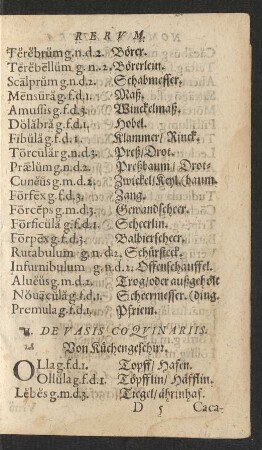 RERVM.
Tĕrĕbrŭm g.n.d.2. Borer.
Tĕrĕbĕllŭm g. n. 2. Börerlein.
Scālprŭm g.n.d.2. Schabmesser.
Mēnsŭră g.f.d.1. Maß.
Amussĭs g.f.d.3. Winckelmaß.
Dŏlābră g.f.d.1. Hobel.
Fībŭlă g.f.d.1. Klammer/ Rinck.
Tŏrcŭlăr g.n.d.3. Preß/Drot.
Prælŭm g.n.d.2. Preßbaum/ Drot-
Cunĕŭs g.m.d.2. Zwickel/Keyl. (baum.
Fŏrfex g.f.d.3. Zang.
Fŏrcĕps g.m.d.3. Gewandscheer.
Fŏrficŭlă g.f.d.1. Scheerlin.
Fŏrpĕx g.f.d.3. Balbierscheer.
Rutabulum g.n.d.2. Schürsteck.
Infurnibulum g.n.d.2. Offenschauffel.
Aluĕŭs g.m.d.2. Trog/oder außgehölt
Nŏuācŭlă g.f.d.1. Schermesser. (ding.
Premula g.f.d.1. Pfriem.
DE VASIS COQVINARIIS.
Von Küchengeschirr.
OLla g.f.d.1. Topff/ Hafen.
Ollŭla g.f.d.1 Töpfflin/ Häfflin.
Lĕbĕs g.m.d.3. Tiegel/ährinhaf.
D 5 Caca-